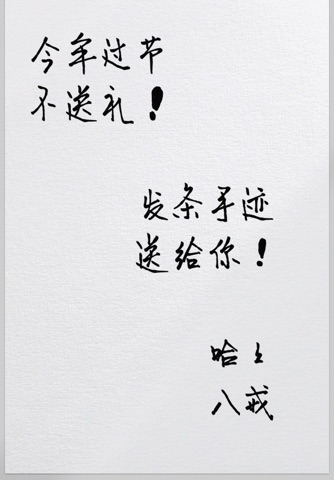 今年过节
不送礼！
发条手迹
送给你！
哈
八戒